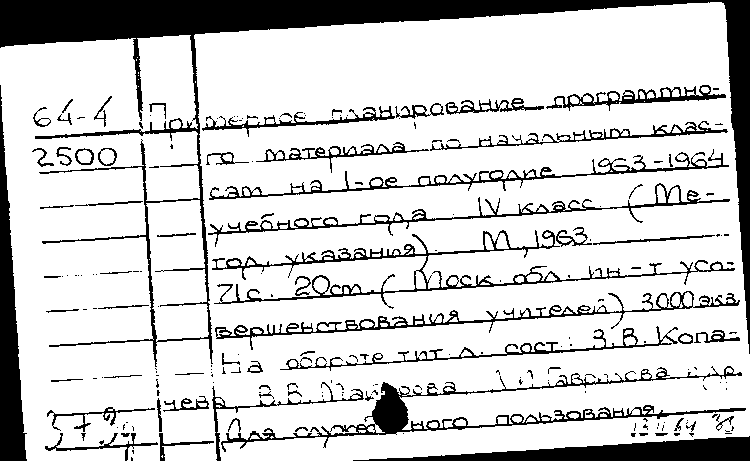 64-4 Примерное планирование программно-
2500 го материала по начальным клас-
сам на 1-ое полугодие 1963-1964
учебного года IV класс (Ме-
тод. указания). М., 1963.
71с. 20см. (Моск. обл. ин-т усо-
вершенствования учителей) 3000экз
На обороте тит. л. сост.: З.В. Копа-
чева, В.В. Гаврилова и др.
Для служебного пользования.
13 II 64